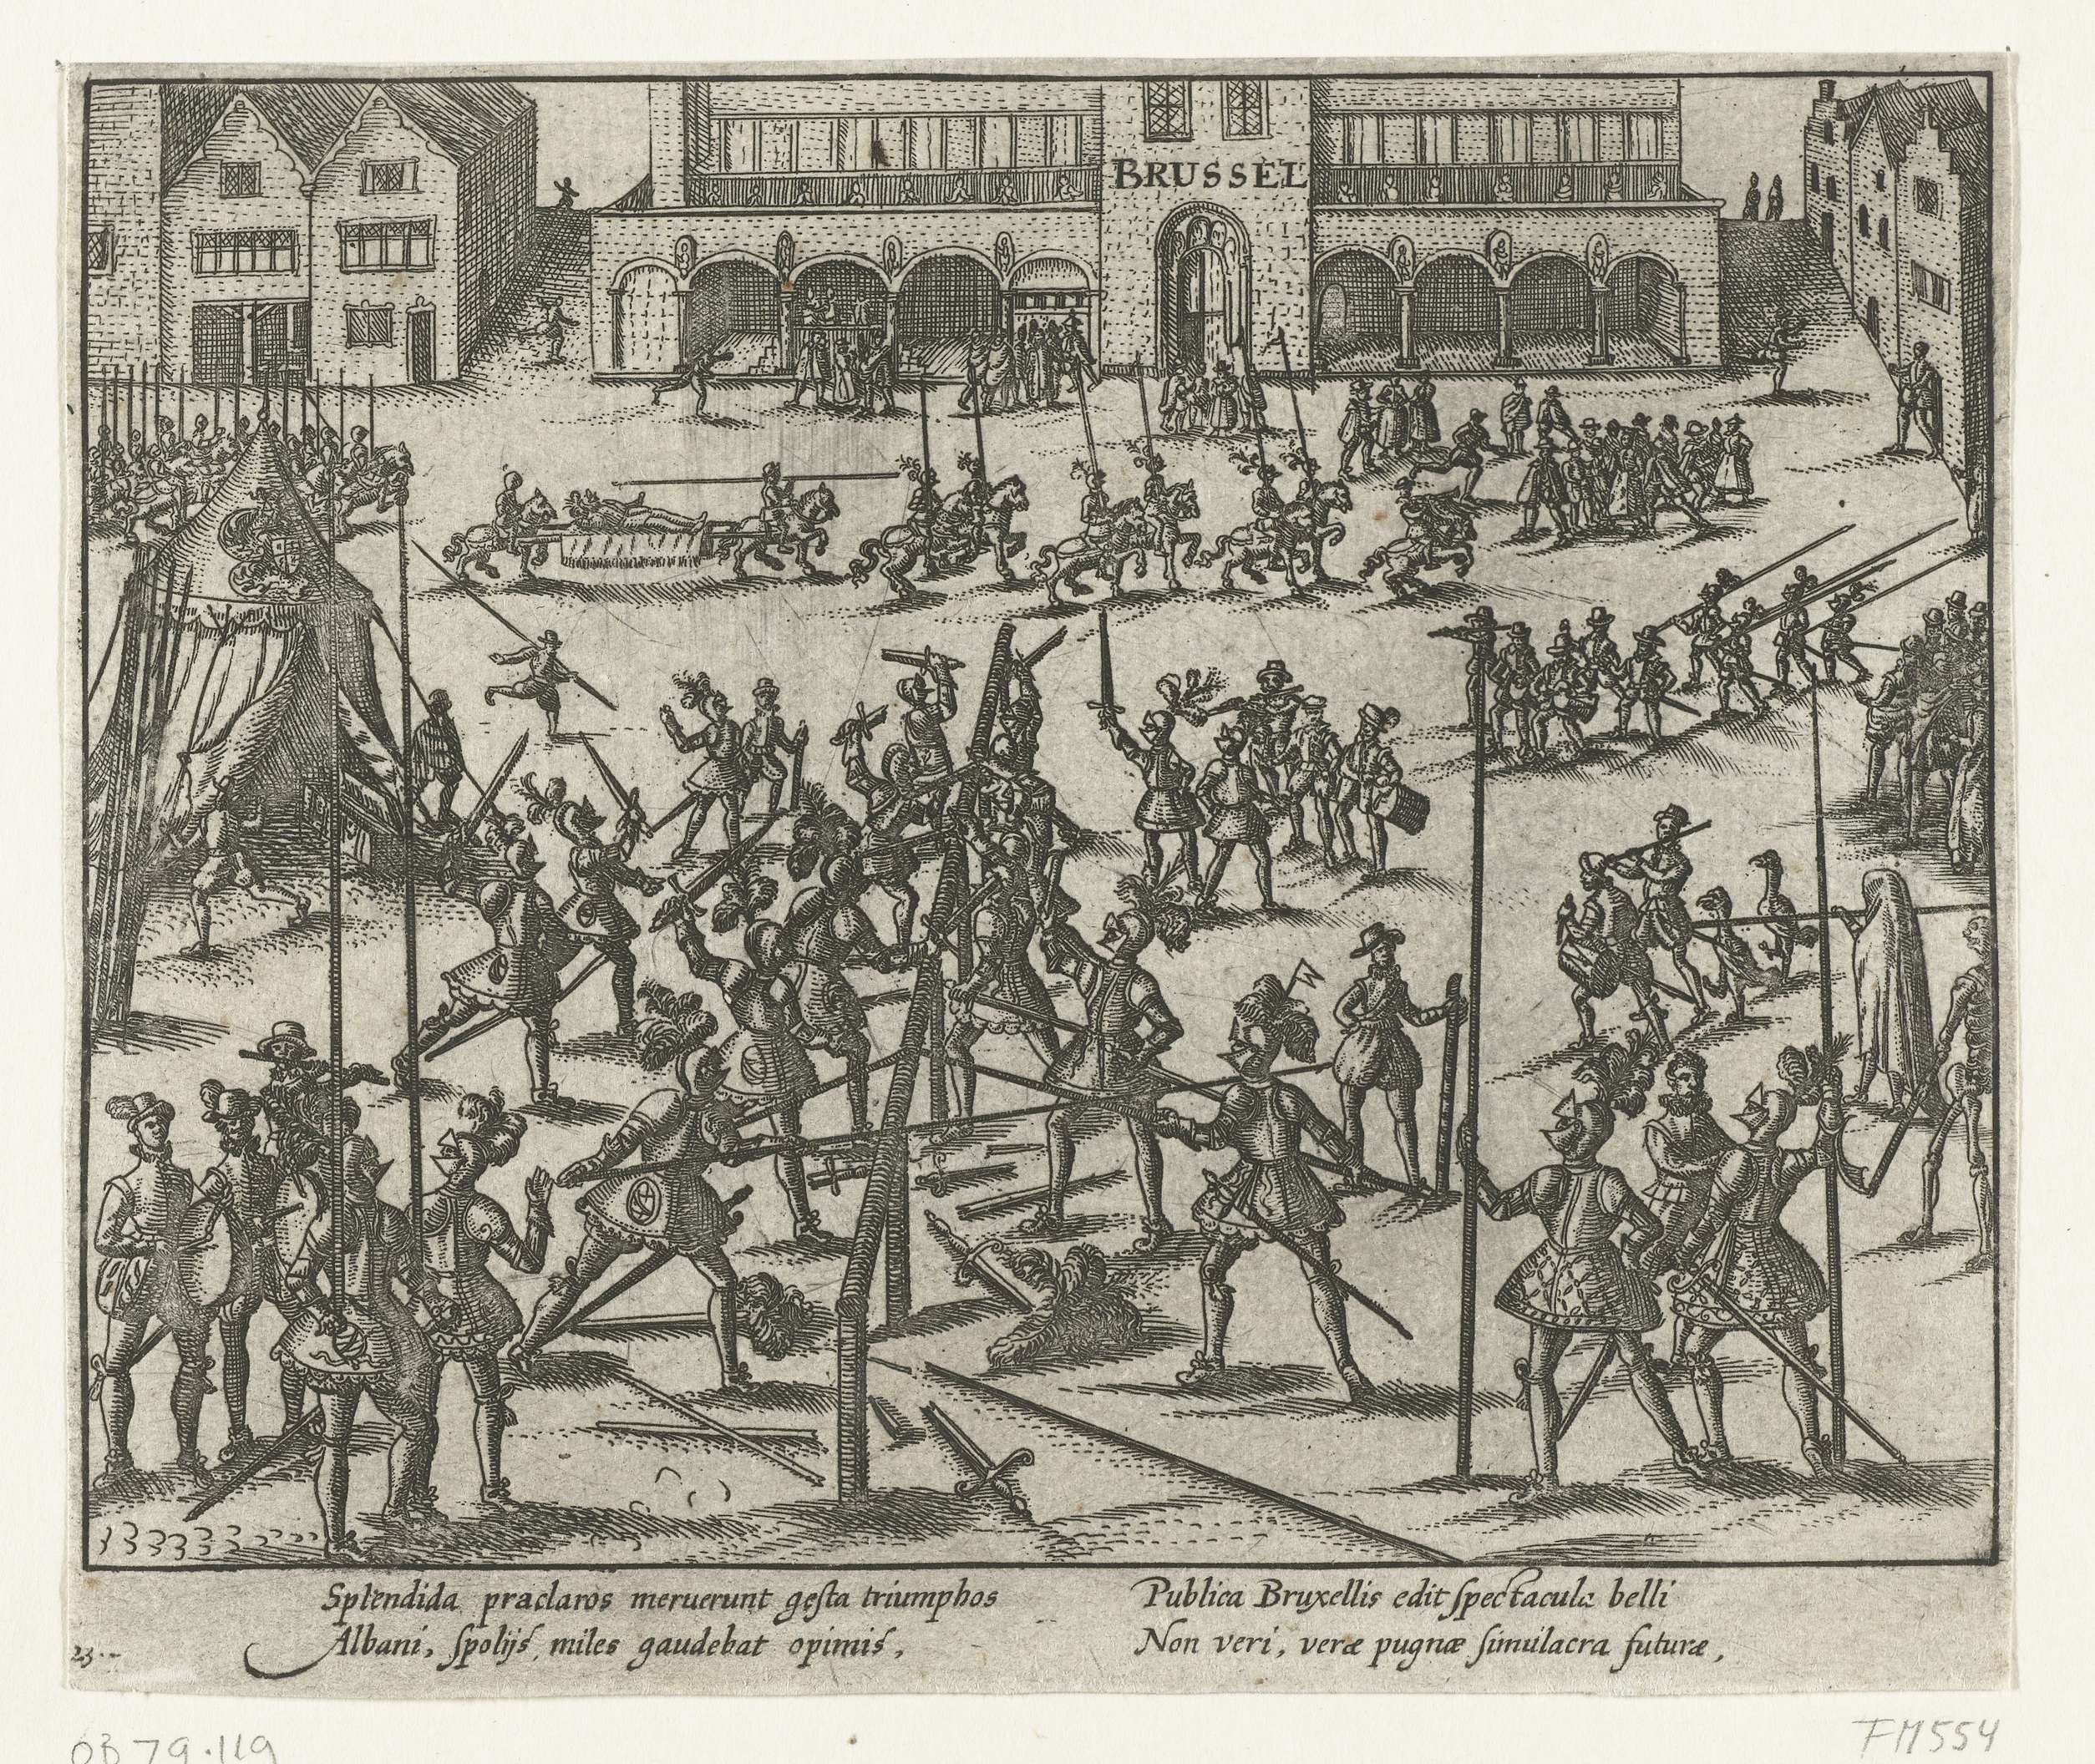 BRUSSEL
Splendida praclaros meruerunt gesta triumphos
Albani, spolijs, miles gaudebat opimis,
Publica Bruxellis edit spectacula belli
Non veri, veræ pugnæ simulacra futuræ,
23.
OB 79.119
FM554